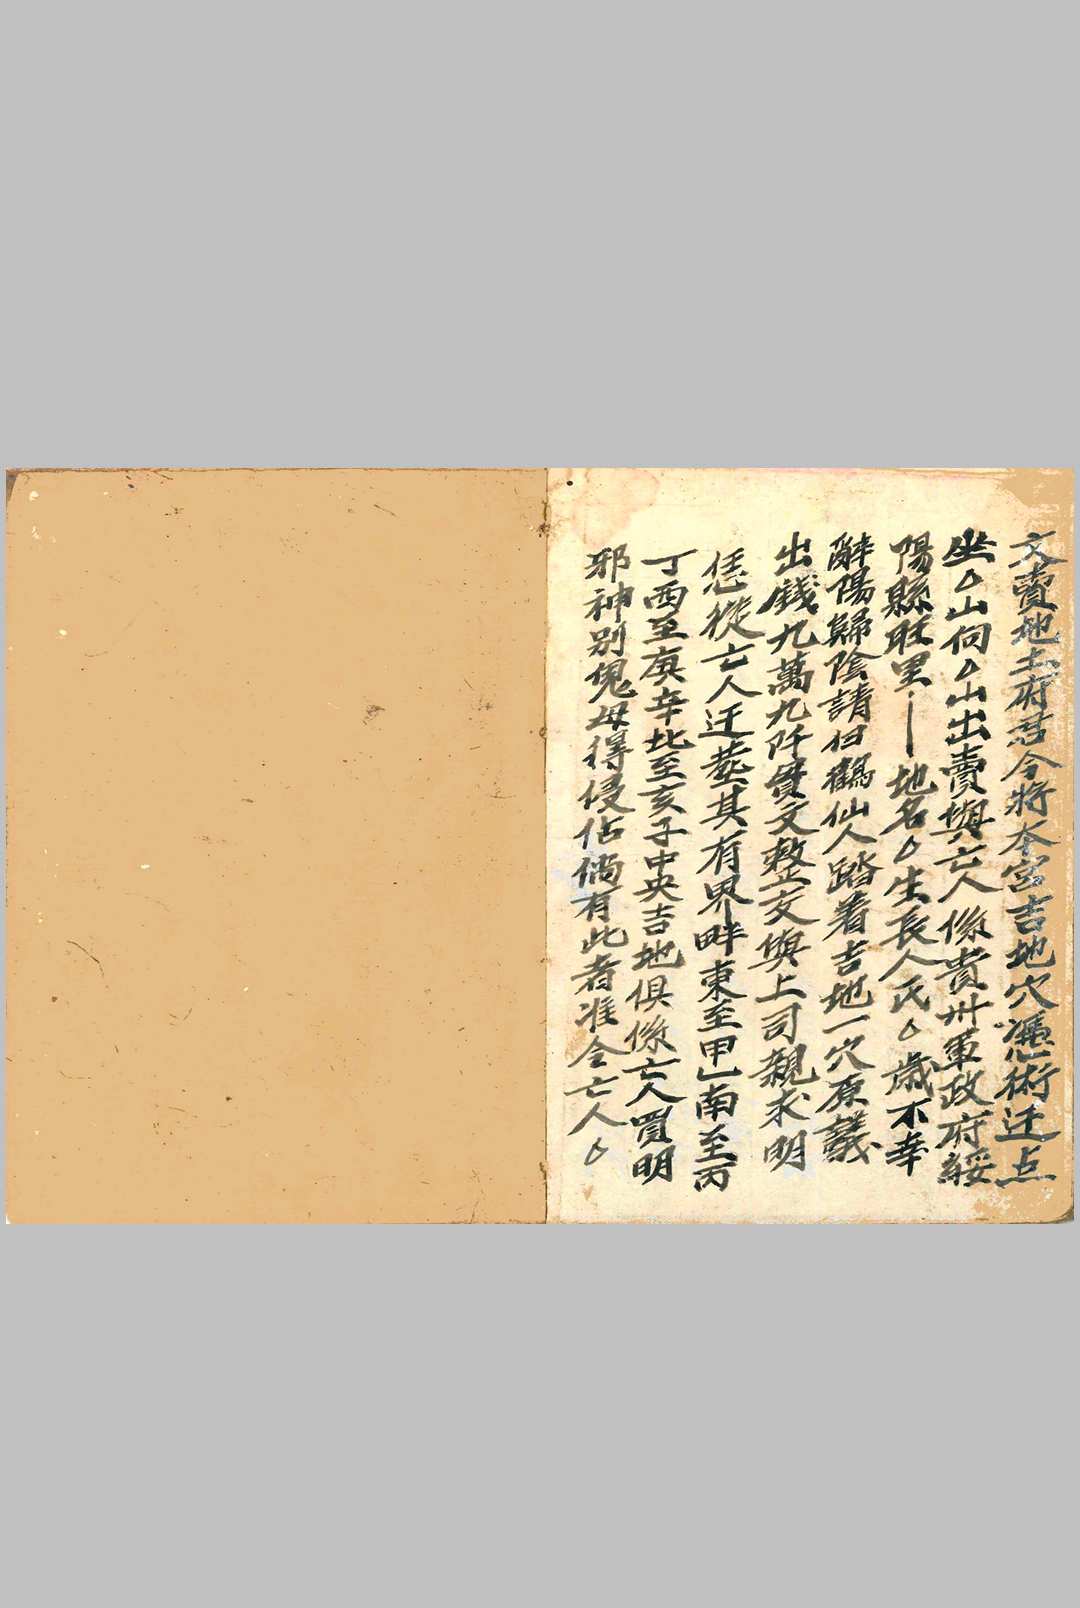 文賣地土府君今將本宮吉地穴憑術迁点
坐△山向△山出賣與亡人係貴州軍政府綏
陽縣旺里丨地名△生長人氏△歲不幸
辭陽歸陰請白鶴仙人踏着吉地一穴原議
出錢九萬九阡貫文整交與上司親求明
恁從亡人迁塟其有界畔東至甲乙南至丙
丁西至庚辛北至亥子中央吉地俱係亡人買明
邪神別鬼毋得侵佔倘有此者准令亡人△